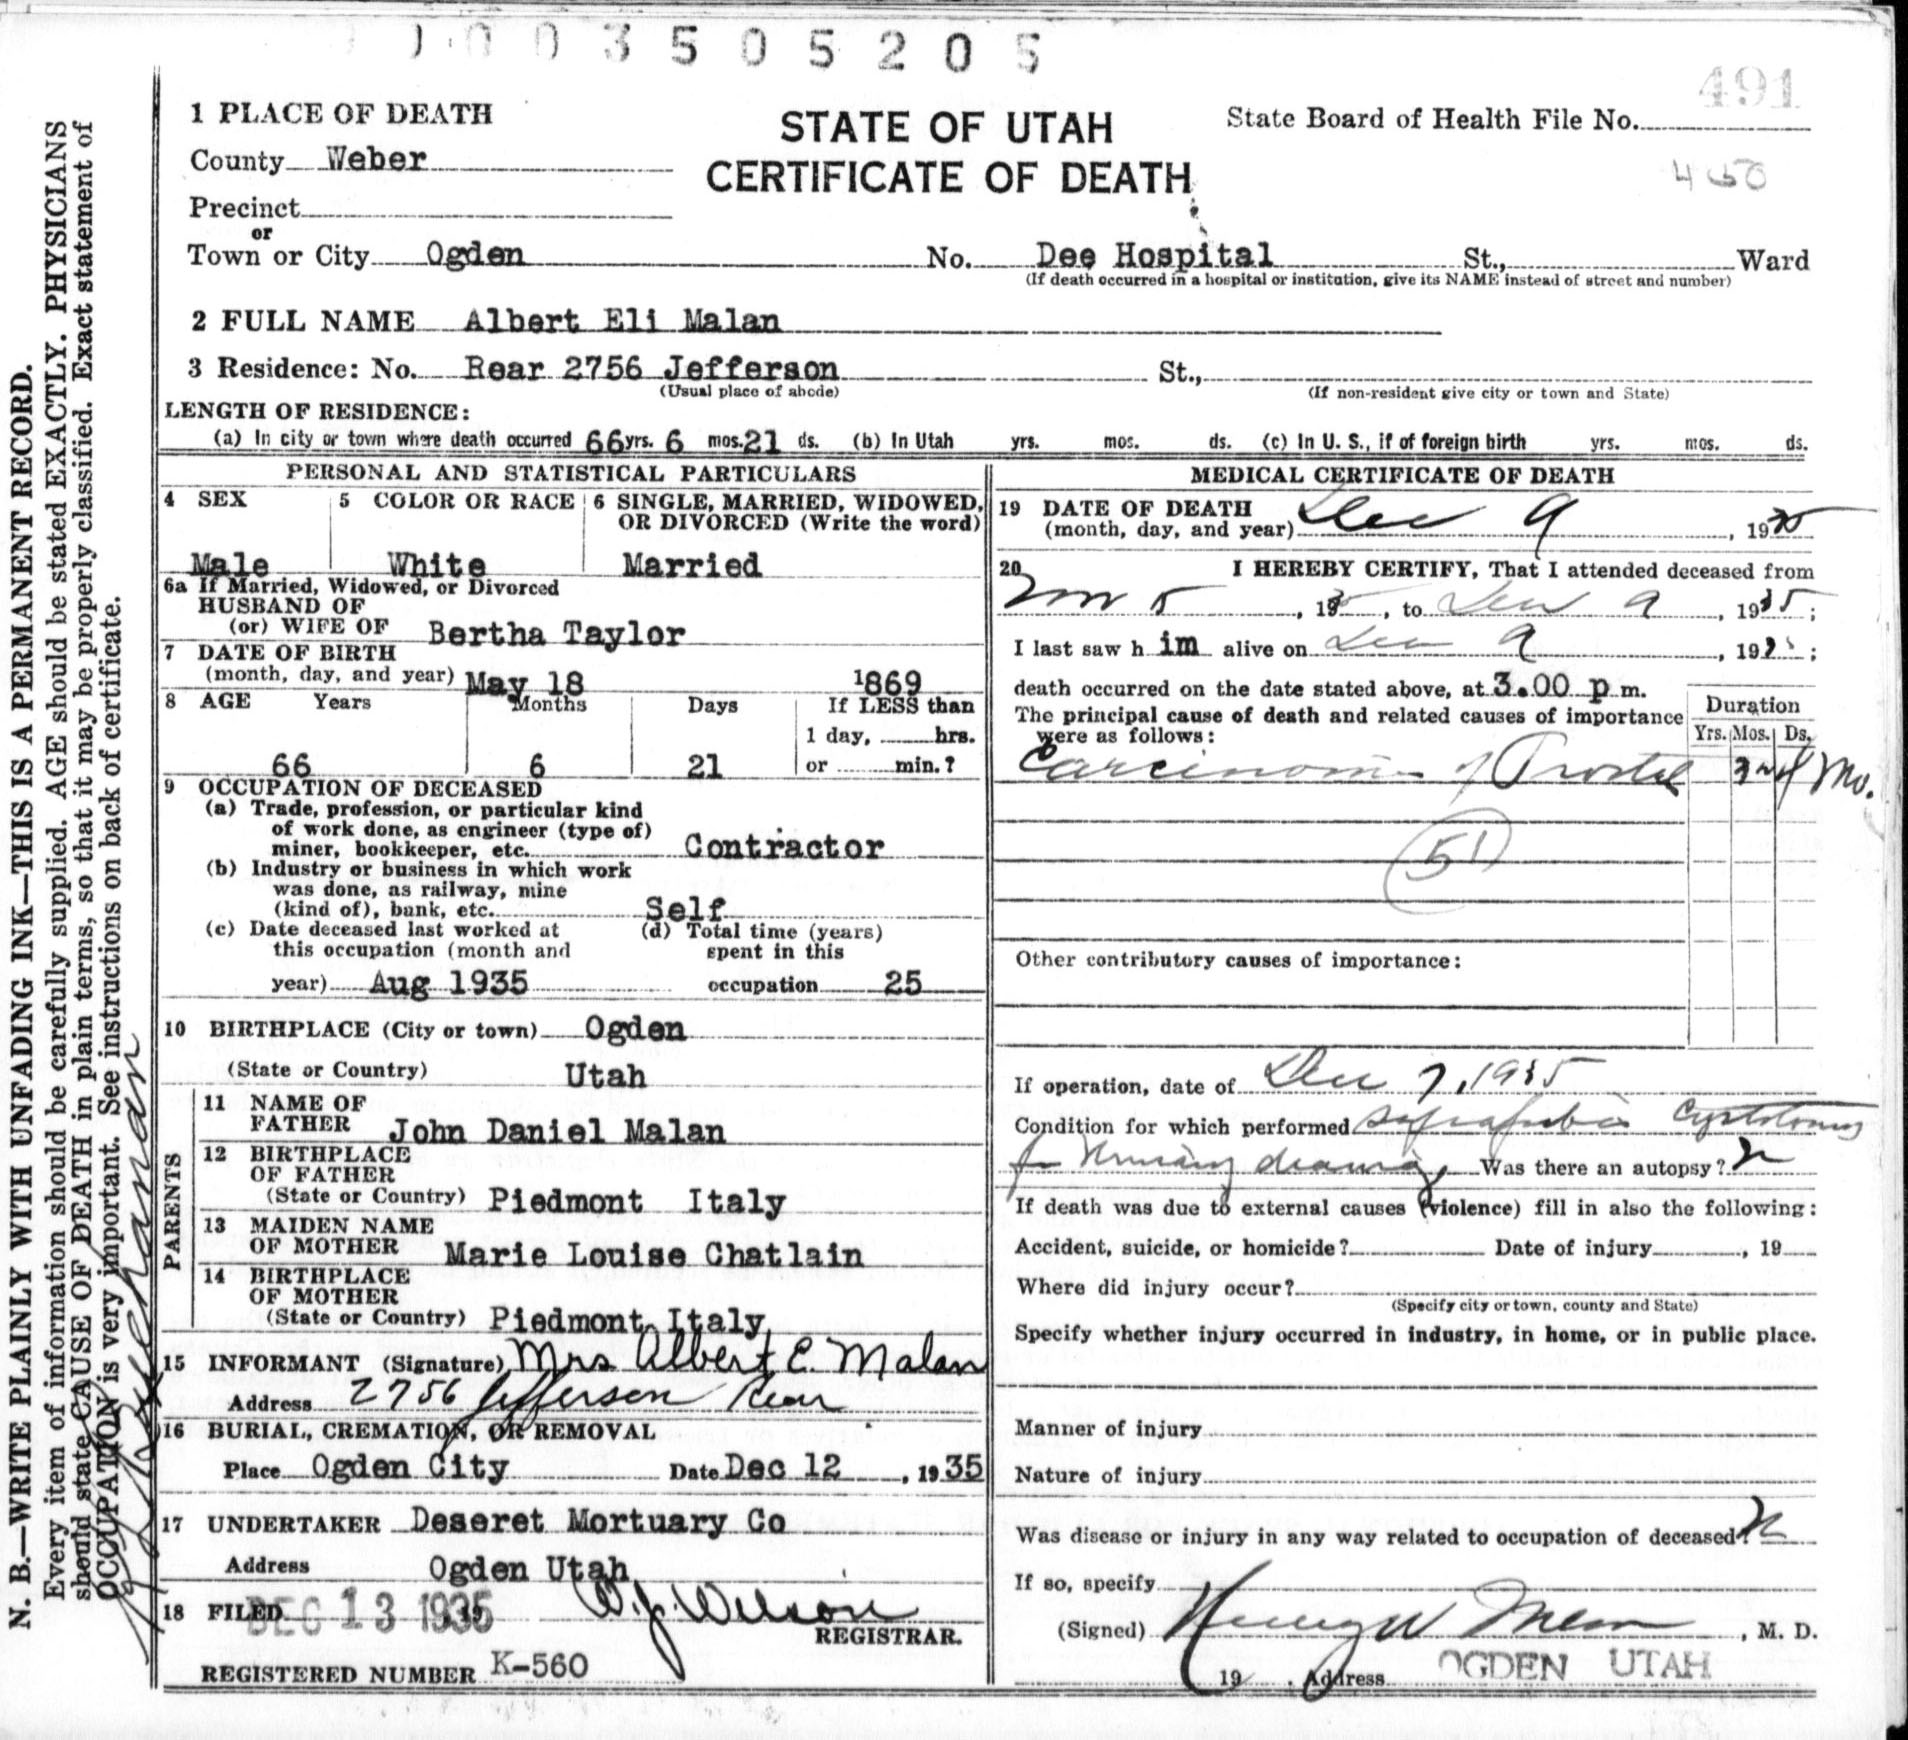 1003505205
491
1 PLACE OF DEATH
STATE OF UTAH
CERTIFICATE OF DEATH
State Board of Health File No.
County Weber
Precinct
or
Town or City Ogden No. Dee Hospital St., Ward
(If death occurred in a hospital or institution, give its NAME instead of street and number)
2 FULL NAME Albert Eli Malan
3 Residence: No. Rear 2756 Jefferson St.,
(Usual place of abode) (If non-resident give city or town and State)
LENGTH OF RESIDENCE:
(a) In city or town where death occurred 66 yrs. 6 mos. 21 ds. (b) In Utah yrs. mos. ds. (c) In U. S., if of foreign birth yrs. mos. ds.
PERSONAL AND STATISTICAL PARTICULARS
4 SEX 5 COLOR OR RACE 6 SINGLE, MARRIED, WIDOWED,
OR DIVORCED (Write the word)
Male White Married
6a If Married, Widowed, or Divorced
HUSBAND OF
(or) WIFE OF Bertha Taylor
7 DATE OF BIRTH
(month, day, and year) May 18 1869
8 AGE Years Months Days If LESS than
1 day, hrs.
66 6 21 or min.?
9 OCCUPATION OF DECEASED
(a) Trade, profession, or particular kind
of work done, as engineer (type of)
miner, bookkeeper, etc. Contractor
(b) Industry or business in which work
was done, as railway, mine
(kind of), bank, etc. Self
(c) Date deceased last worked at (d) Total time (years)
this occupation (month and spent in this
year) Aug 1935 occupation 25
10 BIRTHPLACE (City or town) Ogden
(State or Country) Utah
PARENTS
11 NAME OF
FATHER John Daniel Malan
12 BIRTHPLACE
OF FATHER
(State or Country) Piedmont Italy
13 MAIDEN NAME
OF MOTHER Marie Louise Chatlain
14 BIRTHPLACE
OF MOTHER
(State or Country) Piedmont Italy
15 INFORMANT (Signature) Mrs Albert E. Malan
Address 2756 Jefferson Rear
16 BURIAL, CREMATION, OR REMOVAL
Place Ogden City Date Dec 12, 1935
17 UNDERTAKER Deseret Mortuary Co
Address Ogden Utah
18 FILED DEC 13 1935 W.J. Wilson
REGISTRAR.
REGISTERED NUMBER K-560
MEDICAL CERTIFICATE OF DEATH
19 DATE OF DEATH
(month, day, and year) Dec 9, 1935
20 I HEREBY CERTIFY, That I attended deceased from
Nov 5, 1935, to Dec 9, 1935;
I last saw him alive on Dec 9, 193;
death occurred on the date stated above, at 3.00 p m.
The principal cause of death and related causes of importance
were as follows:
Duration
Yrs. Mos. Ds.
Carcinoma of Prostate Mo.
51
Other contributory causes of importance:
If operation, date of Dec 7, 1935
Condition for which performed suprapubic cystotomy
for drainage. Was there an autopsy?
If death was due to external causes (violence) fill in also the following:
Accident, suicide, or homicide? Date of injury, 19
Where did injury occur?
(Specify city or town, county and State)
Specify whether injury occurred in industry, in home, or in public place.
Manner of injury
Nature of injury
Was disease or injury in any way related to occupation of deceased?
If so, specify
(Signed) , M. D.
19 . Address OGDEN UTAH
N. B.—WRITE PLAINLY WITH UNFADING INK—THIS IS A PERMANENT RECORD.
Every item of information should be carefully supplied. AGE should be stated EXACTLY. PHYSICIANS
should state CAUSE OF DEATH in plain terms, so that it may be properly classified. Exact statement of
OCCUPATION is very important. See instructions on back of certificate.